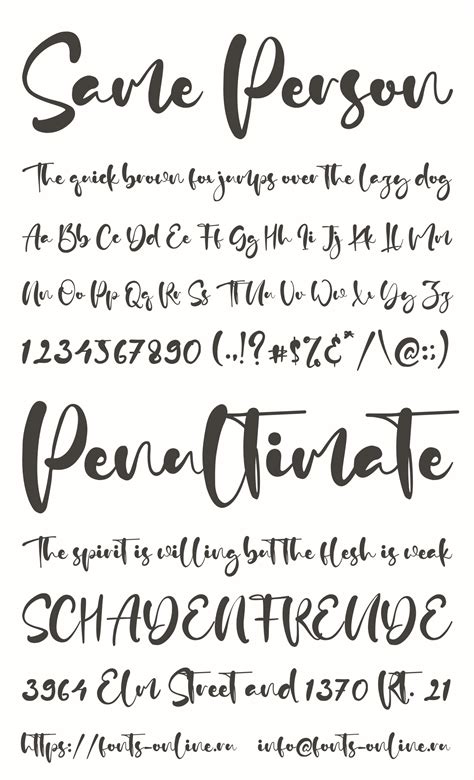 Same Person
The quick brown fox jumps over the lazy dog
Aa Bb Cc Dd Ee Ff Gg Hh Ii Jj Kk Ll Mm
Nn Oo Pp Qq Rr Ss Tt Uu Vv Ww Xx Yy Zz
1234567890 (.,!?#$%&*/\@:;)
Penultimate
The spirit is willing but the flesh is weak
SCHADENFREUDE
3964 Elm Street and 1370 Rt. 21
https://fonts-online.ru info@fonts-online.ru